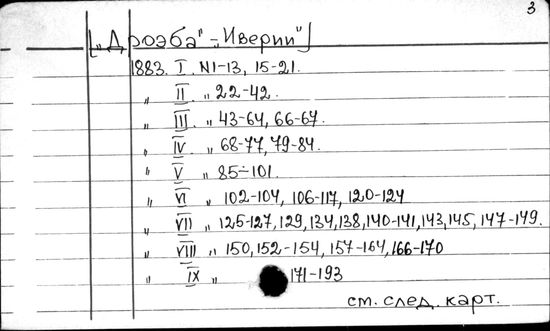 3
[„Дроэба" - „Иверии"]
1883. I. N1-13, 15-21.
„ II. „ 22-42.
„ III. „ 43-64, 66-67.
„ IV „ 68-77, 79-84.
„ V „ 85-101.
„ VI „ 102-104, 106-117, 120-124
„ VII „ 125-127, 129, 134, 138, 140-141, 143, 145, 147-149.
„ VIII „ 150, 152-154, 157-164, 166-170
„ IX „ 171-193
см. след. карт.